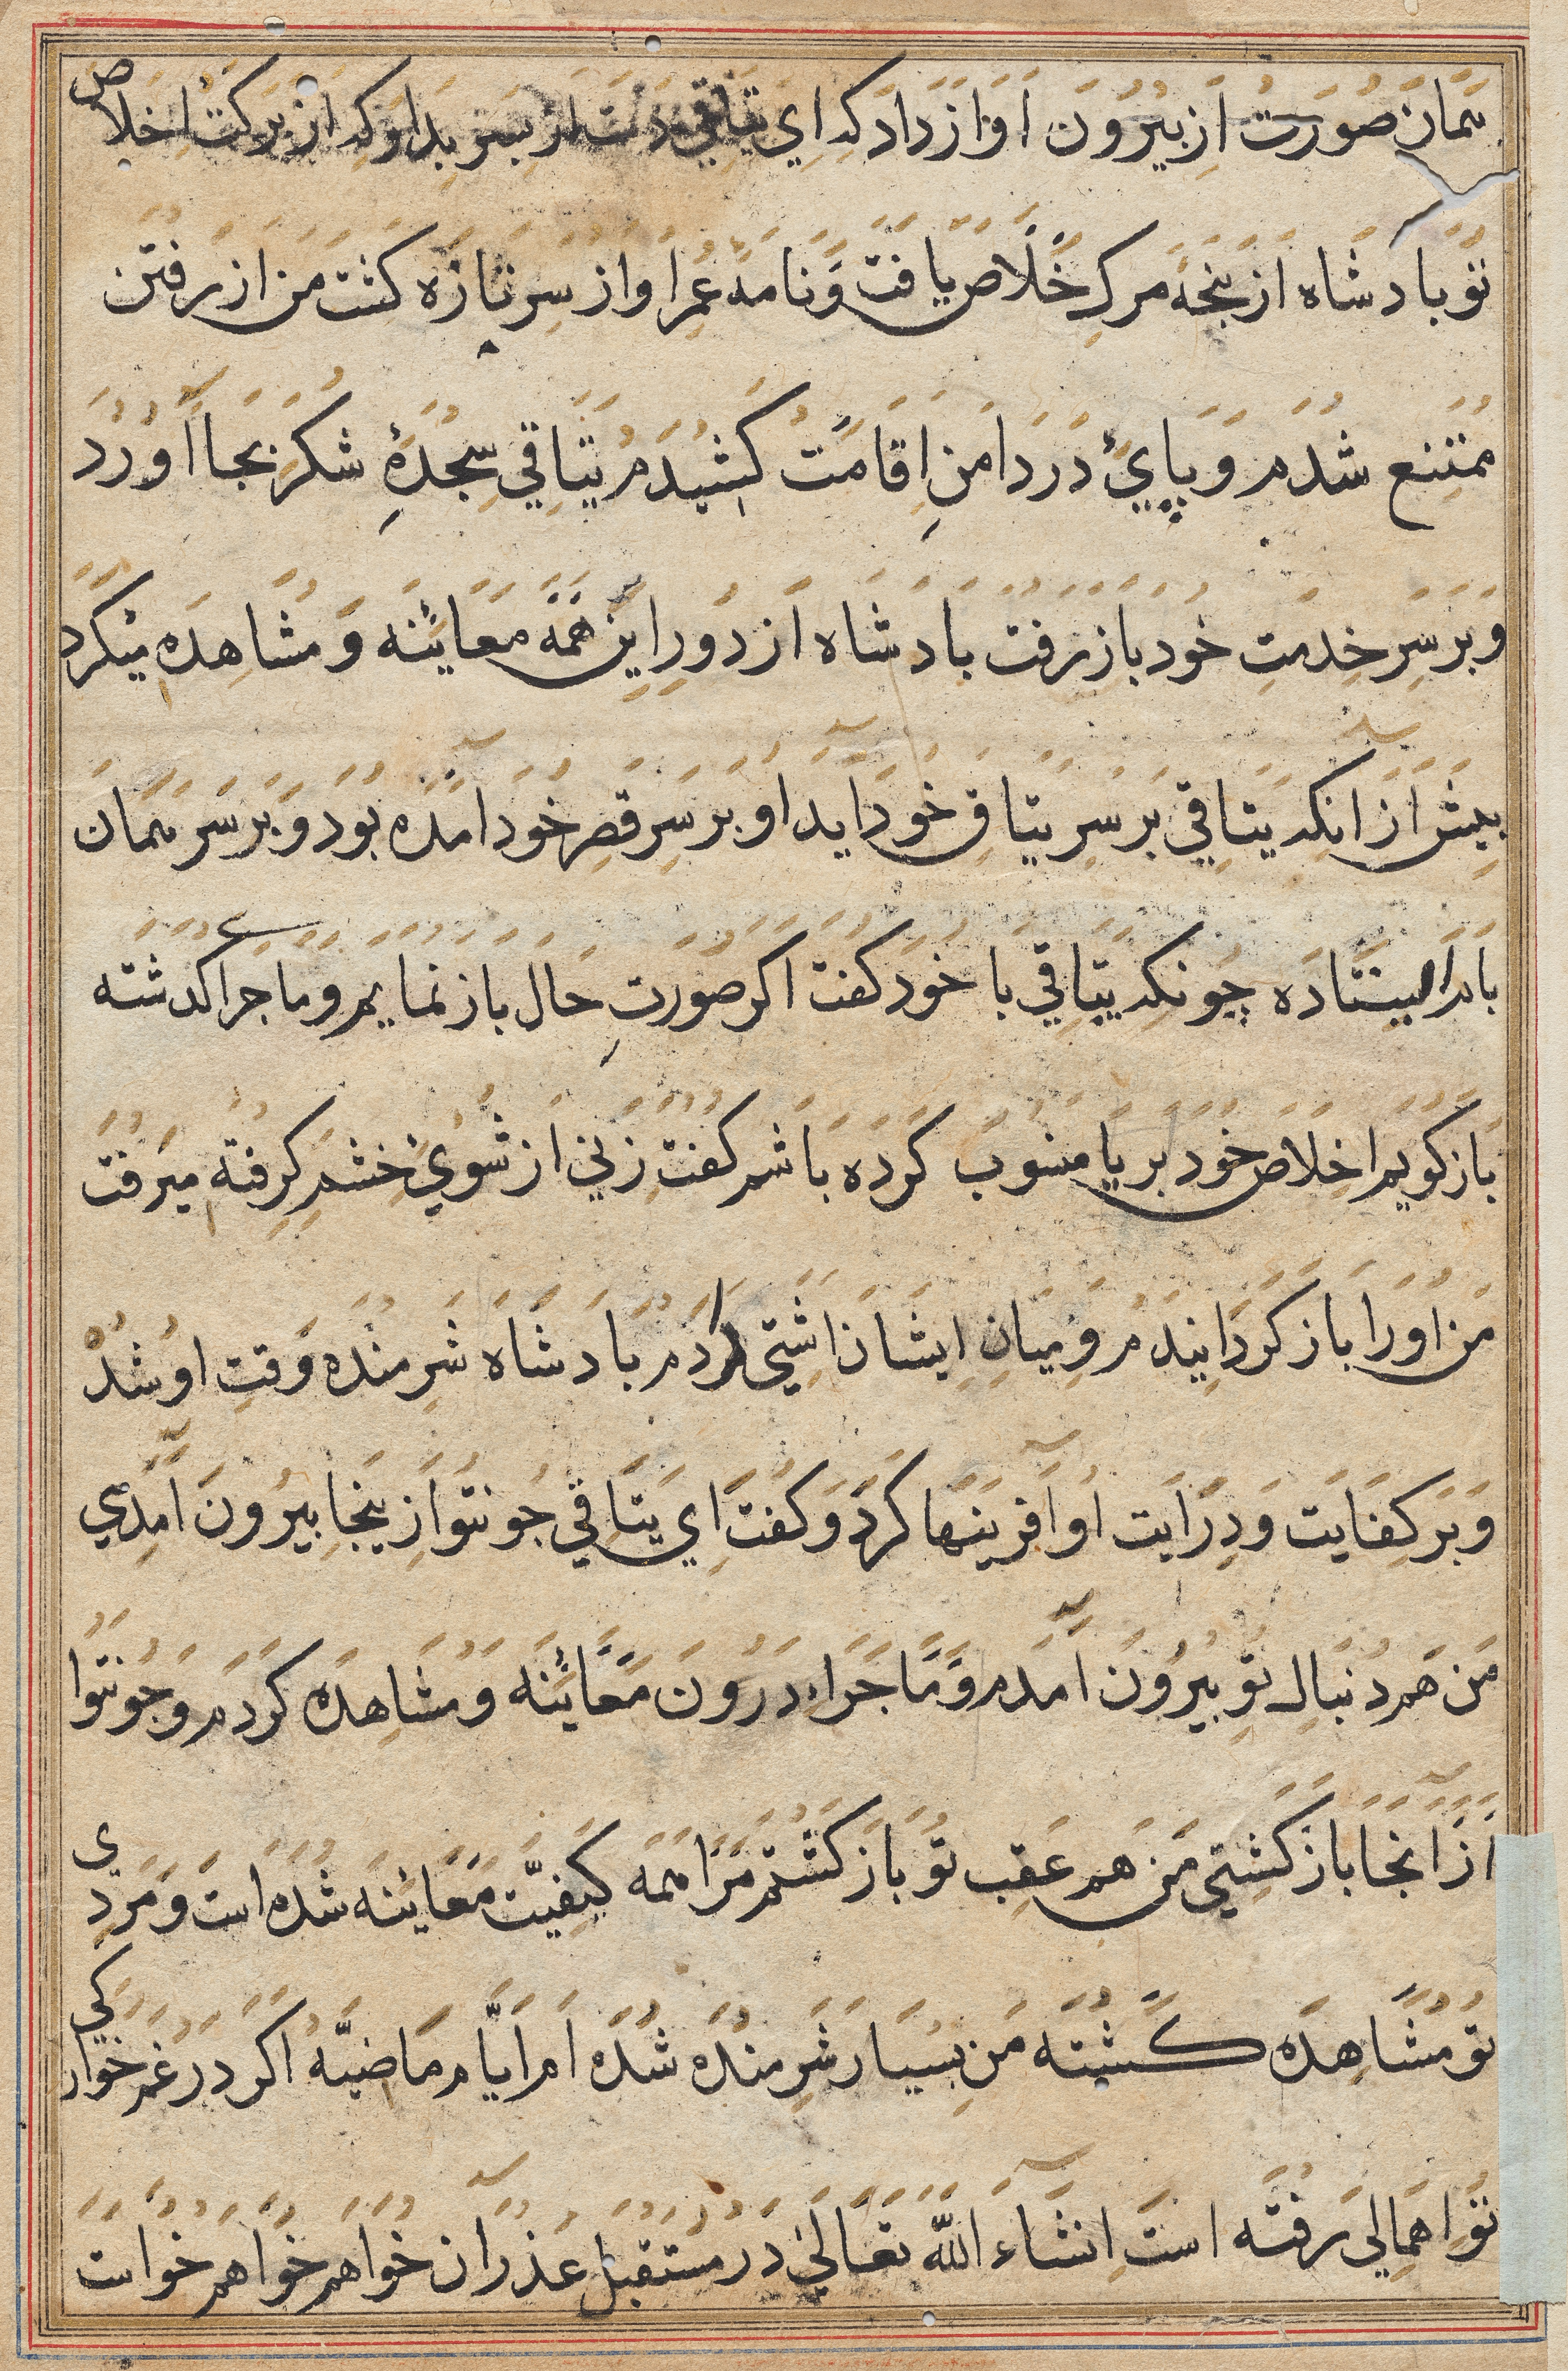 همان صورت از بیرون آواز داد که ای یتاقی دست از پسر بدار که از برکت اخلاص
تو بادشاه از پنجه مرک خلاص یافت و نامه عمر او از سر تازه کشت من از رفتن
ممتنع شدم و پای در دامن اقامت کشیدم یتاقی سجدهٔ شکر بجا آورد
و بر سر خدمت خود باز رفت بادشاه از دور این همه معاینه و مشاهده میکرد
پیش از آنکه یتاقی بر سر یتاق خود آید او بر سر قصر خود آمده بود و بر سر همان
بالا ایستاده چونکه یتاقی با خود کفت اکر صورت حال باز نمایم و ماجرا کدشته
باز کویم اخلاص خود بریا منسوب کرده باشم کفت زنی از شوی خشم کرفته میرفت
من اورا باز کردانیدم و میان ایشان آشتی کردم بادشاه شرمنده وقت او شد
و بر کفایت و درایت او آفرینها کرد و کفت ای یتاقی جون تو از ینجا بیرون آمدی
من هم دنبال تو بیرون آمدم و ماجراء درون معاینه و مشاهده کردم و جون تو
از آنجا باز کشتی من هم عقب تو باز کشتم مرا همه کیفیت معاینه شده است و مردی
تو مشاهده کشته من بسیار شرمنده شده ام ایام ماضیه اکر در غم خوارکی
تو اهمالی رفته است انشاء الله تعالی در مستقبل عذر آن خواهم خواهم خواست